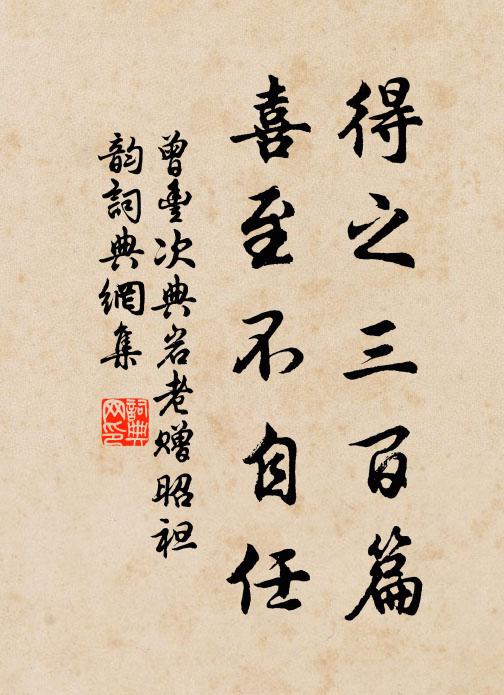 得之三百篇
喜至不自任
曾豐次典岩老赠昭祖
韵詞典網集
詞典网印